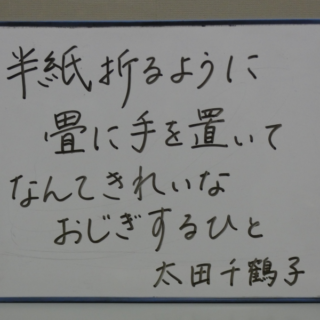 半紙折るように
畳に手を置いて
なんてきれいな
おじぎするひと
太田千鶴子